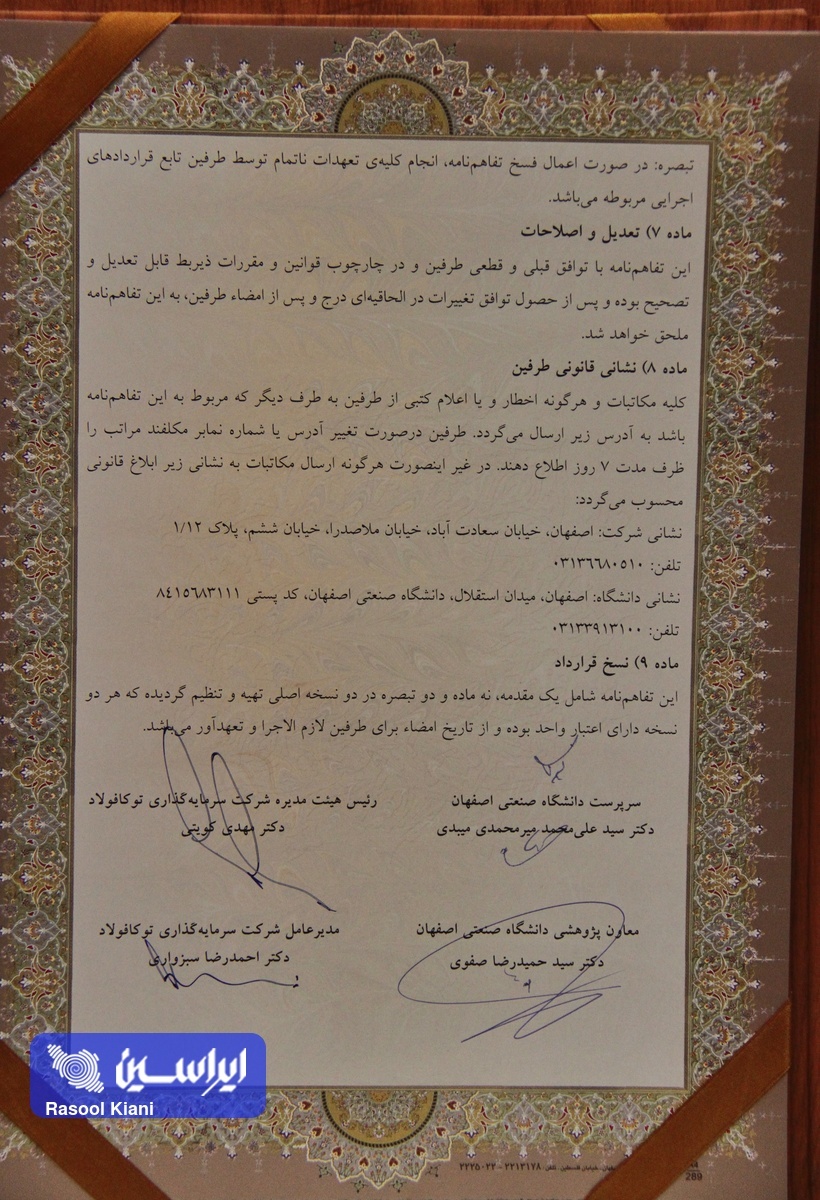 تبصره: در صورت اعمال فسخ تفاهم‌نامه، انجام کلیه‌ی تعهدات ناتمام توسط طرفین تابع قراردادهای
اجرایی مربوطه می‌باشد.
ماده ۷) تعدیل و اصلاحات
این تفاهم‌نامه با توافق قبلی و قطعی طرفین و در چارچوب قوانین و مقررات ذیربط قابل تعدیل و
تصحیح بوده و پس از حصول توافق تغییرات در الحاقیه‌ای درج و پس از امضاء طرفین، به این تفاهم‌نامه
ملحق خواهد شد.
ماده ۸) نشانی قانونی طرفین
کلیه مکاتبات و هرگونه اخطار و یا اعلام کتبی از طرفین به طرف دیگر که مربوط به این تفاهم‌نامه
باشد به آدرس زیر ارسال می‌گردد. طرفین درصورت تغییر آدرس یا شماره نمابر مکلفند مراتب را
ظرف مدت ۷ روز اطلاع دهند. در غیر اینصورت هرگونه ارسال مکاتبات به نشانی زیر ابلاغ قانونی
محسوب می‌گردد:
نشانی شرکت: اصفهان، خیابان سعادت آباد، خیابان ملاصدرا، خیابان ششم، پلاک ۱/۱۲
تلفن: ۰۳۱۳٦٦۸۰۵۱۰
نشانی دانشگاه: اصفهان، میدان استقلال، دانشگاه صنعتی اصفهان، کد پستی ۸٤۱۵٦۸۳۱۱۱
تلفن: ۰۳۱۳۳۹۱۳۱۰۰
ماده ۹) نسخ قرارداد
این تفاهم‌نامه شامل یک مقدمه، نه ماده و دو تبصره در دو نسخه اصلی تهیه و تنظیم گردیده که هر دو
نسخه دارای اعتبار واحد بوده و از تاریخ امضاء برای طرفین لازم الاجرا و تعهدآور می‌باشد.
سرپرست دانشگاه صنعتی اصفهان
دکتر سید علی‌محمد میرمحمدی میبدی
رئیس هیئت مدیره شرکت سرمایه‌گذاری توکافولاد
دکتر مهدی کویتی
معاون پژوهشی دانشگاه صنعتی اصفهان
دکتر سید حمیدرضا صفوی
مدیرعامل شرکت سرمایه‌گذاری توکافولاد
دکتر احمدرضا سبزواری
ایراسین
Rasool Kiani
خیابان فلسطین، تلفن: ۲۲۱۳۱۷۸ – ۲۲۲۵۰۲۲
289